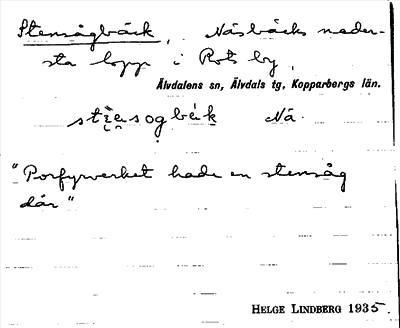 Stensågbäck, Näsbäcks neder-
sta lopp i Rots by,
Älvdalens sn, Älvdals tg, Kopparbergs län.
Nä.
"Porfyrverket hade en stensåg
där"
HELGE LINDBERG 1935.